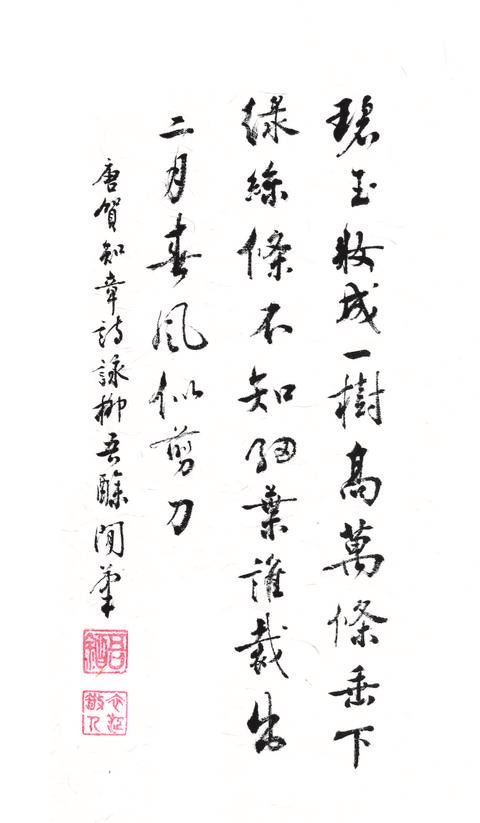 碧玉妝成一樹高萬條垂下
緑絲條不知細葉誰裁出
二月春風似剪刀
唐賀知章詩詠柳吾閒筆